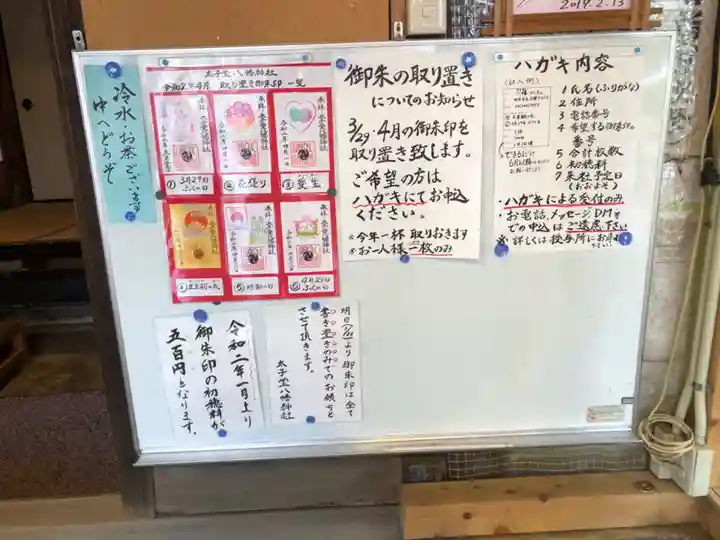 冷水、お茶ございます
中へどうぞ
太子堂八幡神社
令和2年4月 取り置き御朱印一覧
奉拝 太子堂八幡神社
① 3月29日
ふくの日
② 花便り
③ 愛里
⑥ 4月29日
ふくの日
御朱の取り置き
についてのお知らせ
3/29・4月の御朱印を
取り置き致します。
ご希望の方は
ハガキにてお申込
ください。
※今年一杯 取りおきます
※お一人様二枚のみ
ハガキ内容
1 氏名(ふりがな)
2 住所
3 電話番号
4 希望する御朱印の
番号
5 合計枚数
6 初穂料
7 来社予定日
(おおよそ)
・ハガキによる受付のみ
・お電話、メッセージDM
での申込はご遠慮下さい
※詳しくは授与所にお
令和二年一月より
御朱印の初穂料が
五百円となります。
より御朱印は全て
書き置きのみでのお頒ちと
させて頂きます。
太子堂八幡神社
2019.2.13